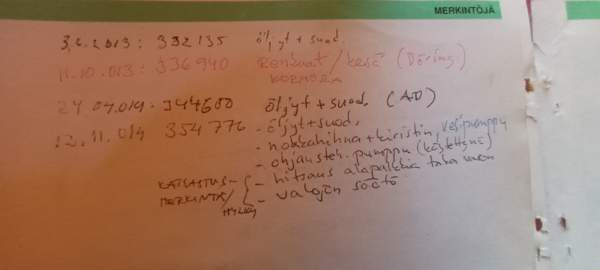 MERKINTÖJÄ
3.6.2013: 332135 öljyt + suod.
11.10.013: 336940 Renkaat/kesä (Döring)
24.04.014. 344680 öljyt + suod. (AD)
12.11.014 354776 - öljyt + suod.
- nokkahihna + kiristin, vesipumppu
- ohjausteh. pumppu (käytettynä)
KATSASTUS- - hitsaus alapalkkia taka
MERKINTÄ/ - valojen säätö
HYLKY